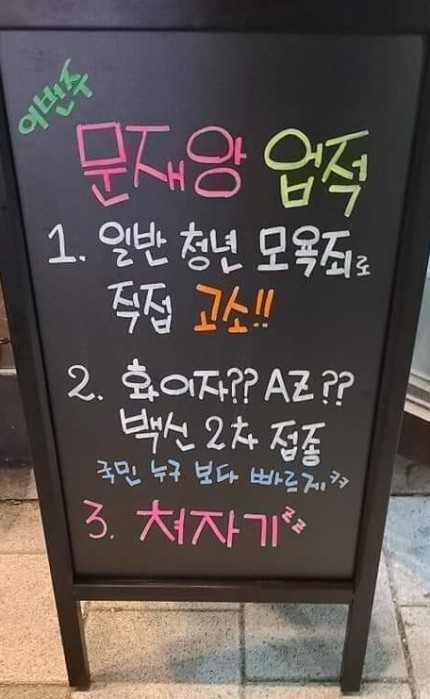 이번주
문재앙 업적
1. 일반 청년 모욕죄로
직접 고소!!
2. 화이자?? AZ??
백신 2차 접종
국민 누구 보다 빠르게ㅋㅋ
3. 쳐자기zz